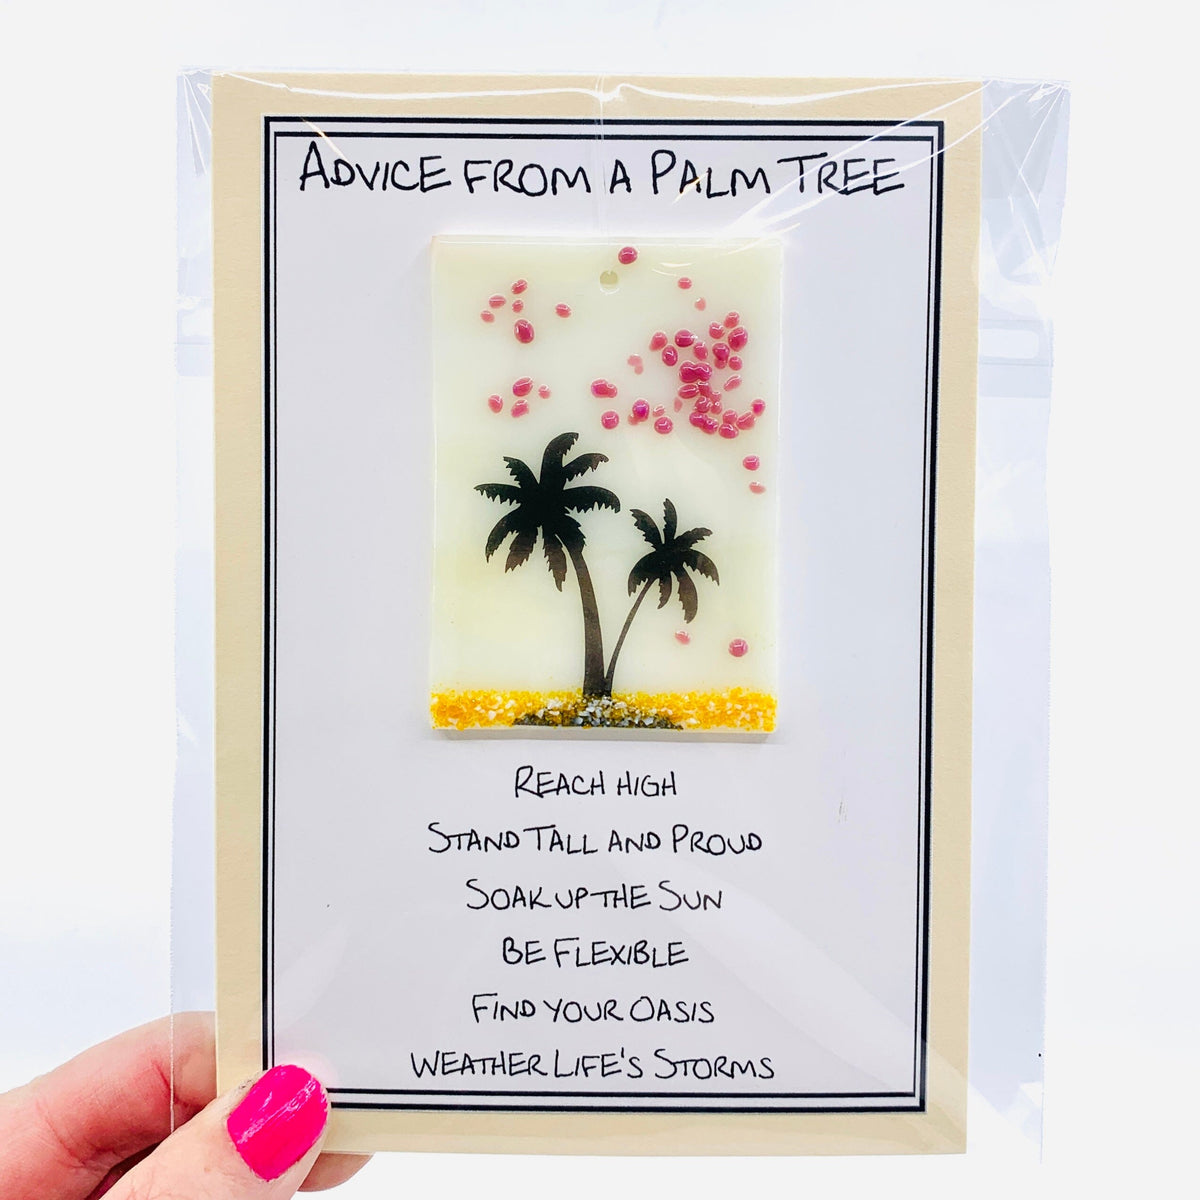 Advice from a Palm Tree
Reach High
Stand Tall and Proud
Soak up the Sun
Be Flexible
Find Your Oasis
Weather Life's Storms